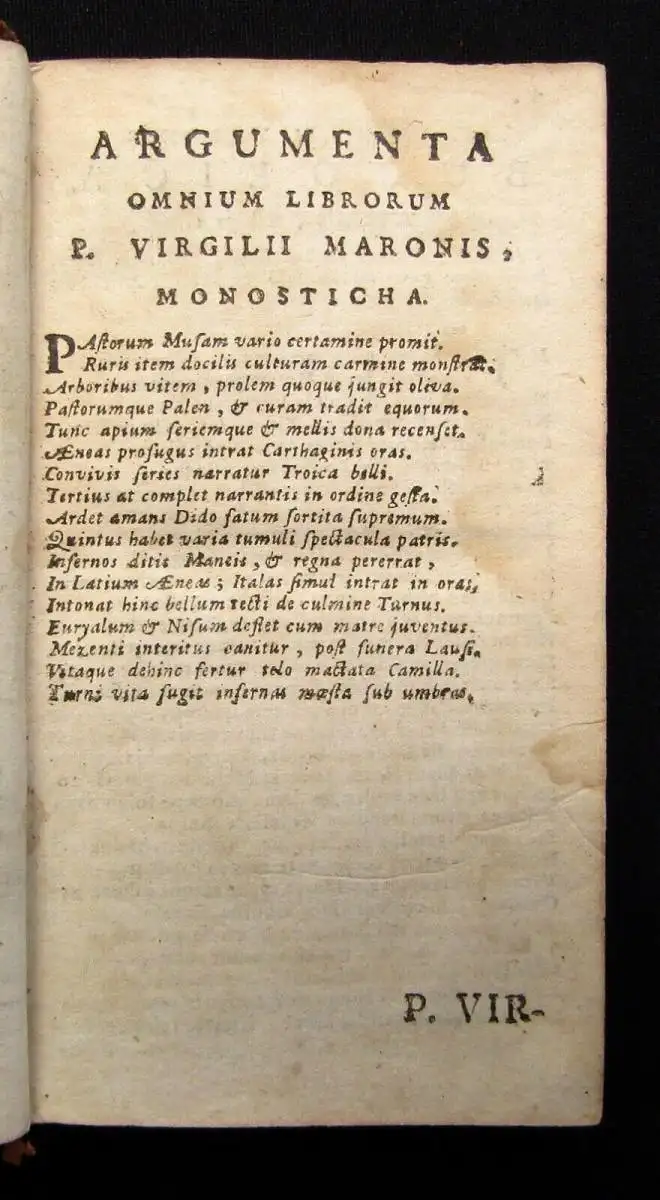 ARGUMENTA
OMNIUM LIBRORUM
P. VIRGILII MARONIS,
MONOSTICHA.
PAſtorum Muſam vario certamine promit.
Ruris item docilis culturam carmine monſtrat.
Arboribus vitem, prolem quoque jungit oliva.
Paſtorumque Palen, & curam tradit equorum.
Tunc apium ſeriemque & mellis dona recenſet.
Æneas profugus intrat Carthaginis oras.
Convivis ſeries narratur Troica belli.
Tertius at complet narrantis in ordine geſta.
Ardet amans Dido fatum ſortita ſupremum.
Quintus habet varia tumuli ſpectacula patris.
Infernos ditis Maneis, & regna pererrat,
In Latium Æneas; Italas ſimul intrat in oras,
Intonat hinc bellum tecti de culmine Turnus.
Euryalum & Niſum deflet cum matre juventus.
Mezenti interitus canitur, poſt funera Lauſi.
Vitaque dehinc fertur telo mactata Camilla.
Turni vita fugit infernas mœſta ſub umbras.
P. VIR-